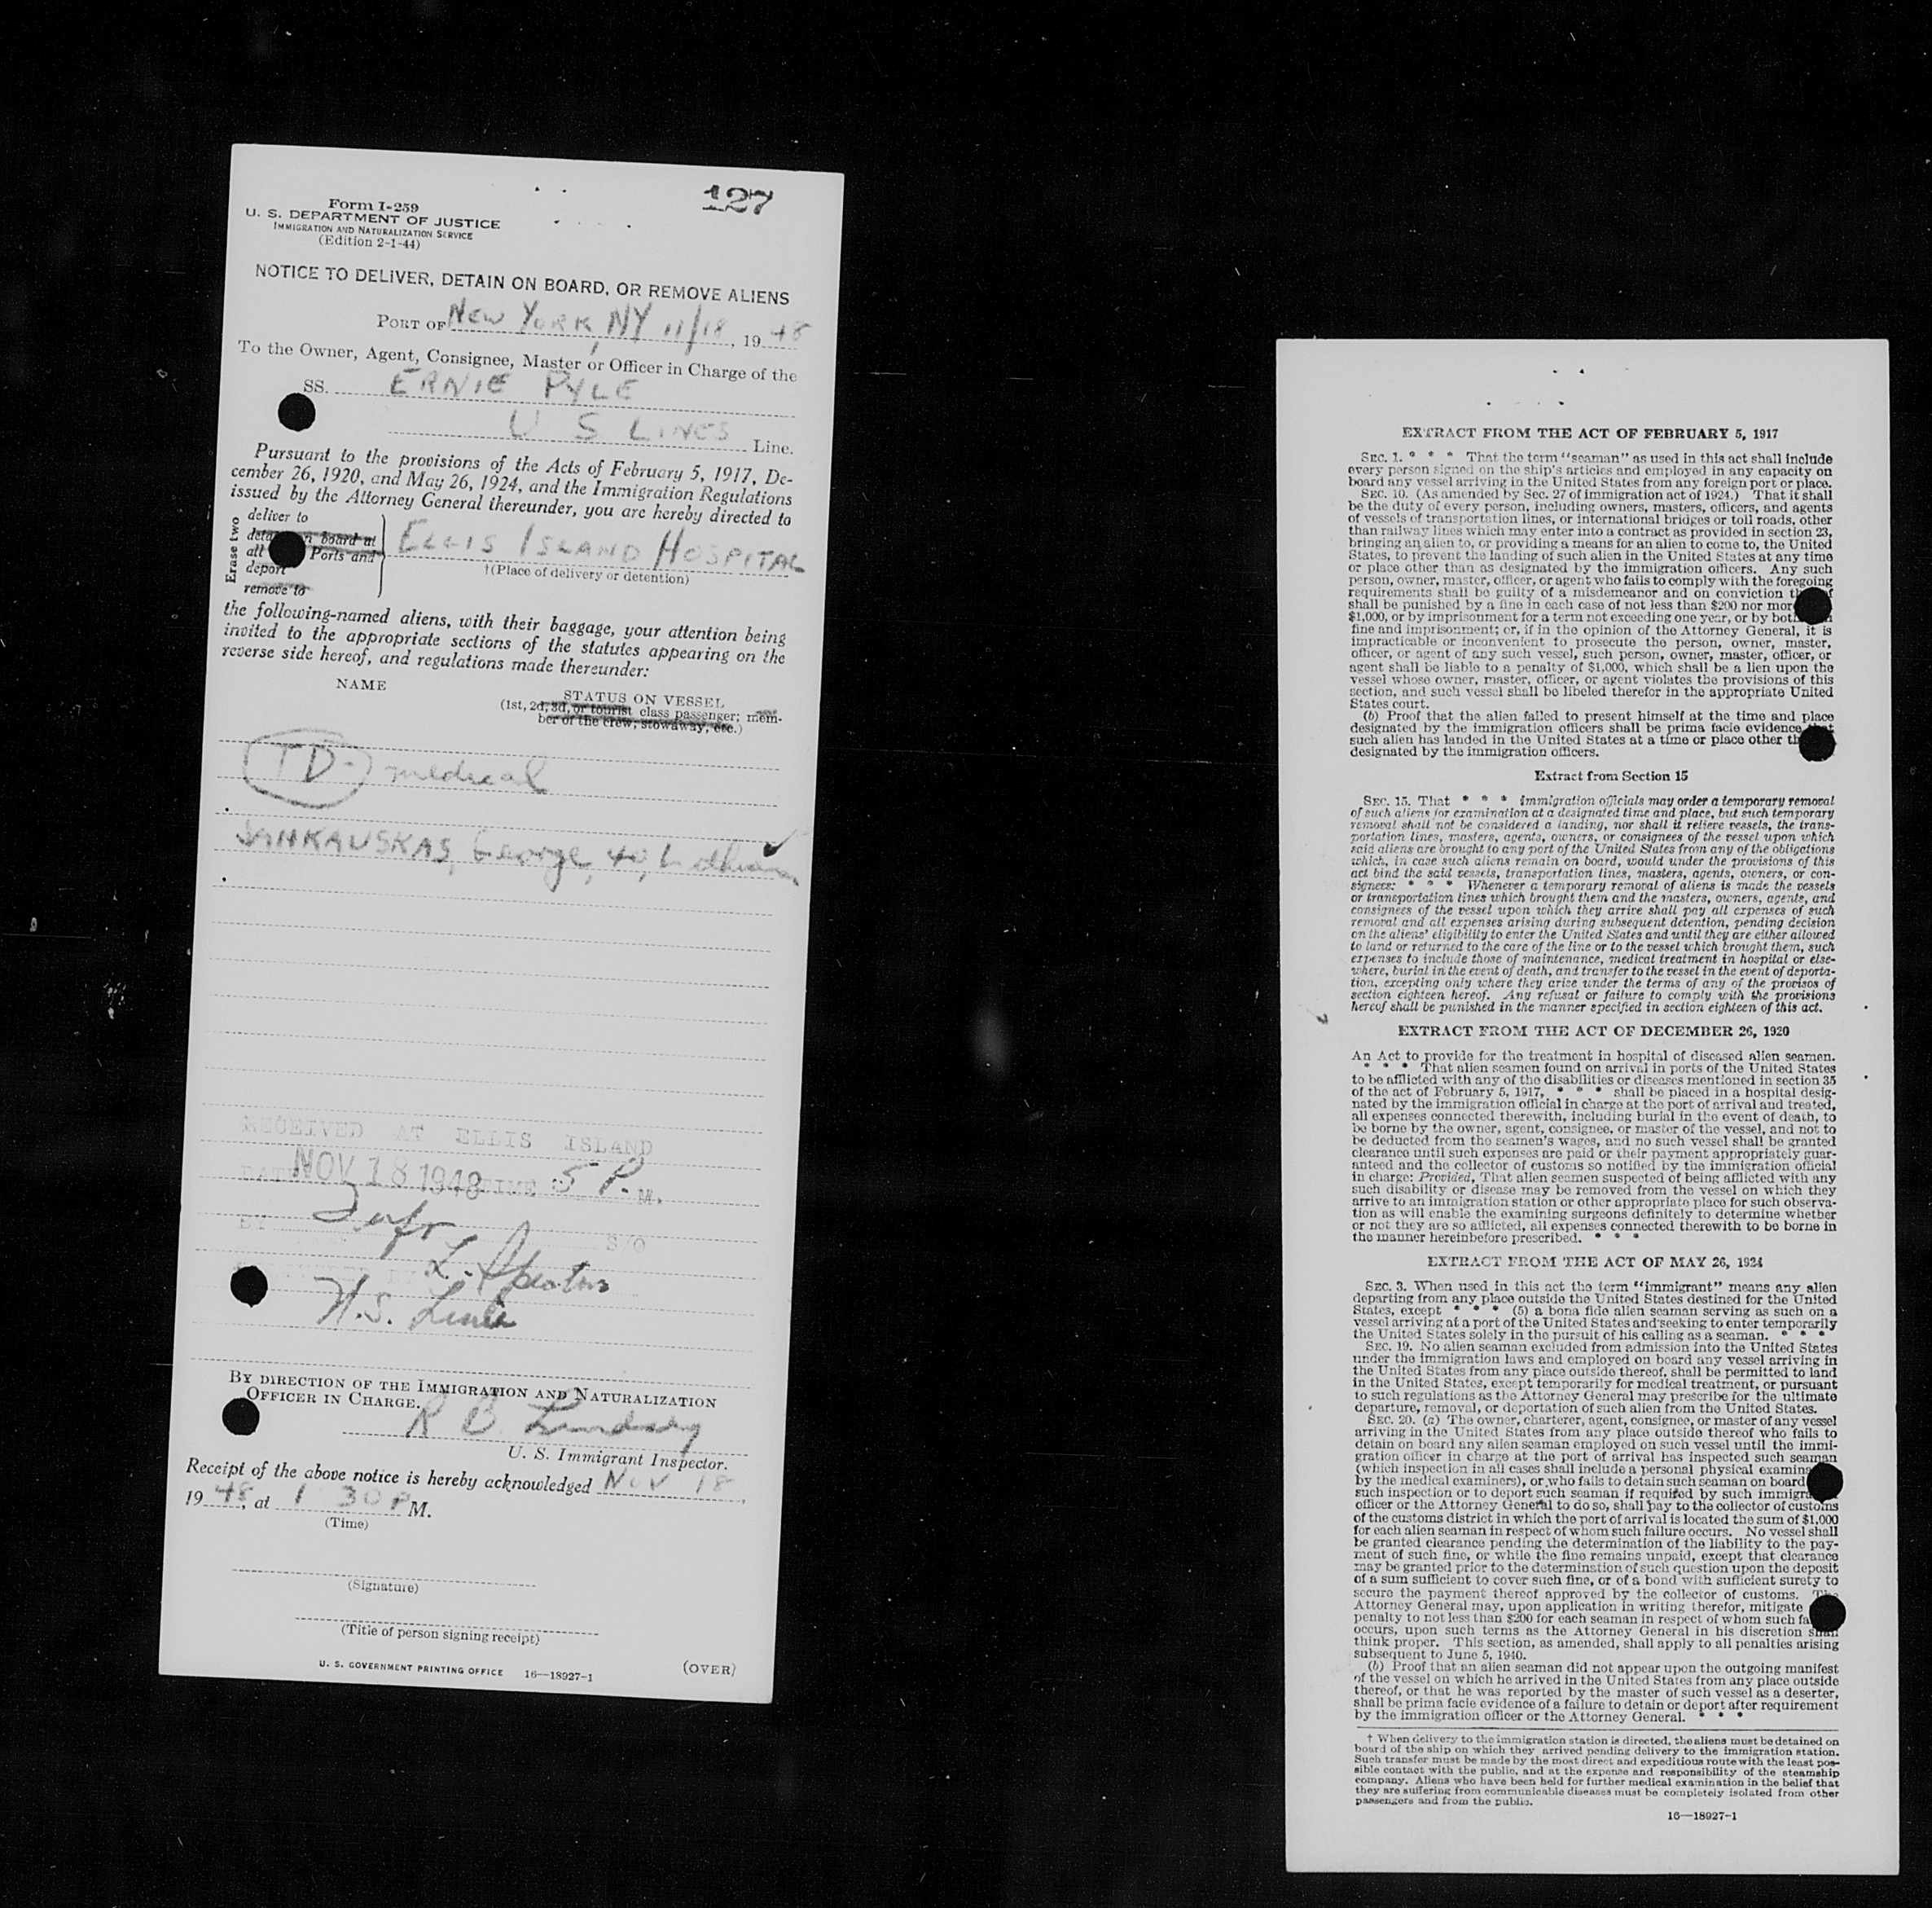 127
Form I-259
U. S. DEPARTMENT OF JUSTICE
IMMIGRATION AND NATURALIZATION SERVICE
(Edition 2-1-44)
NOTICE TO DELIVER, DETAIN ON BOARD, OR REMOVE ALIENS
PORT OF NEW YORK, NY 11/18, 1948
To the Owner, Agent, Consignee, Master or Officer in Charge of the
SS. ERNIE PYLE
U S LINES Line.
Pursuant to the provisions of the Acts of February 5, 1917, De-
cember 26, 1920, and May 26, 1924, and the Immigration Regulations
issued by the Attorney General thereunder, you are hereby directed to
Erase two
deliver to
on board at
all Ports and
deport
remove to
ELLIS ISLAND HOSPITAL
†(Place of delivery or detention)
the following-named aliens, with their baggage, your attention being
invited to the appropriate sections of the statutes appearing on the
reverse side hereof, and regulations made thereunder:
NAME
STATUS ON VESSEL
(1st, 2d, 3d, or tourist class passenger; mem-
ber of the crew, stowaway, etc.)
TD- medical
George, 40,
RECEIVED AT ELLIS ISLAND
DATE NOV 18 1948 TIME 5 P. M.
BY S/O
L.
By DIRECTION OF THE IMMIGRATION AND NATURALIZATION
OFFICER IN CHARGE.
R B Lindsay
U. S. Immigrant Inspector.
Receipt of the above notice is hereby acknowledged Nov 18,
1948, at 1 30 P M.
(Time)
(Signature)
(Title of person signing receipt)
U. S. GOVERNMENT PRINTING OFFICE 16—18927-1
(OVER)
EXTRACT FROM THE ACT OF FEBRUARY 5, 1917
SEC. 1. * * * That the term "seaman" as used in this act shall include
every person signed on the ship's articles and employed in any capacity on
board any vessel arriving in the United States from any foreign port or place.
SEC. 10. (As amended by Sec. 27 of immigration act of 1924.) That it shall
be the duty of every person, including owners, masters, officers, and agents
of vessels of transportation lines, or international bridges or toll roads, other
than railway lines which may enter into a contract as provided in section 23,
bringing an alien to, or providing a means for an alien to come to, the United
States, to prevent the landing of such alien in the United States at any time
or place other than as designated by the immigration officers. Any such
person, owner, master, officer, or agent who fails to comply with the foregoing
requirements shall be guilty of a misdemeanor and on conviction
shall be punished by a fine in each case of not less than $200 nor more
$1,000, or by imprisonment for a term not exceeding one year, or by both
fine and imprisonment; or, if in the opinion of the Attorney General, it is
impracticable or inconvenient to prosecute the person, owner, master,
officer, or agent of any such vessel, such person, owner, master, officer, or
agent shall be liable to a penalty of $1,000, which shall be a lien upon the
vessel whose owner, master, officer, or agent violates the provisions of this
section, and such vessel shall be libeled therefor in the appropriate United
States court.
(b) Proof that the alien failed to present himself at the time and place
designated by the immigration officers shall be prima facie evidence that
such alien has landed in the United States at a time or place other
designated by the immigration officers.
Extract from Section 15
SEC. 15. That * * * immigration officials may order a temporary removal
of such aliens for examination at a designated time and place, but such temporary
removal shall not be considered a landing, nor shall it relieve vessels, the trans-
portation lines, masters, agents, owners, or consignees of the vessel upon which
said aliens are brought to any port of the United States from any of the obligations
which, in case such aliens remain on board, would under the provisions of this
act bind the said vessels, transportation lines, masters, agents, owners, or con-
signees: * * * Whenever a temporary removal of aliens is made the vessels
or transportation lines which brought them and the masters, owners, agents, and
consignees of the vessel upon which they arrive shall pay all expenses of such
removal and all expenses arising during subsequent detention, pending decision
on the aliens' eligibility to enter the United States and until they are either allowed
to land or returned to the care of the line or to the vessel which brought them, such
expenses to include those of maintenance, medical treatment in hospital or else-
where, burial in the event of death, and transfer to the vessel in the event of deporta-
tion, excepting only where they arise under the terms of any of the provisos of
section eighteen hereof. Any refusal or failure to comply with the provisions
hereof shall be punished in the manner specified in section eighteen of this act.
EXTRACT FROM THE ACT OF DECEMBER 26, 1920
An Act to provide for the treatment in hospital of diseased alien seamen.
* * * That alien seamen found on arrival in ports of the United States
to be afflicted with any of the disabilities or diseases mentioned in section 35
of the act of February 5, 1917, * * * shall be placed in a hospital desig-
nated by the immigration official in charge at the port of arrival and treated,
all expenses connected therewith, including burial in the event of death, to
be borne by the owner, agent, consignee, or master of the vessel, and not to
be deducted from the seamen's wages, and no such vessel shall be granted
clearance until such expenses are paid or their payment appropriately guar-
anteed and the collector of customs so notified by the immigration official
in charge: Provided, That alien seamen suspected of being afflicted with any
such disability or disease may be removed from the vessel on which they
arrive to an immigration station or other appropriate place for such observa-
tion as will enable the examining surgeons definitely to determine whether
or not they are so afflicted, all expenses connected therewith to be borne in
the manner hereinbefore prescribed. * * *
EXTRACT FROM THE ACT OF MAY 26, 1924
SEC. 3. When used in this act the term "immigrant" means any alien
departing from any place outside the United States destined for the United
States, except * * * (5) a bona fide alien seaman serving as such on a
vessel arriving at a port of the United States and seeking to enter temporarily
the United States solely in the pursuit of his calling as a seaman. * * *
SEC. 19. No alien seaman excluded from admission into the United States
under the immigration laws and employed on board any vessel arriving in
the United States from any place outside thereof, shall be permitted to land
in the United States, except temporarily for medical treatment, or pursuant
to such regulations as the Attorney General may prescribe for the ultimate
departure, removal, or deportation of such alien from the United States.
SEC. 20. (a) The owner, charterer, agent, consignee, or master of any vessel
arriving in the United States from any place outside thereof who fails to
detain on board any alien seaman employed on such vessel until the immi-
gration officer in charge at the port of arrival has inspected such seaman
(which inspection in all cases shall include a personal physical examina
by the medical examiners), or who fails to detain such seaman on board
such inspection or to deport such seaman if required by such immigra
officer or the Attorney General to do so, shall pay to the collector of customs
of the customs district in which the port of arrival is located the sum of $1,000
for each alien seaman in respect of whom such failure occurs. No vessel shall
be granted clearance pending the determination of the liability to the pay-
ment of such fine, or while the fine remains unpaid, except that clearance
may be granted prior to the determination of such question upon the deposit
of a sum sufficient to cover such fine, or of a bond with sufficient surety to
secure the payment thereof approved by the collector of customs. The
Attorney General may, upon application in writing therefor, mitigate
penalty to not less than $200 for each seaman in respect of whom such fa
occurs, upon such terms as the Attorney General in his discretion shall
think proper. This section, as amended, shall apply to all penalties arising
subsequent to June 5, 1940.
(b) Proof that an alien seaman did not appear upon the outgoing manifest
of the vessel on which he arrived in the United States from any place outside
thereof, or that he was reported by the master of such vessel as a deserter,
shall be prima facie evidence of a failure to detain or deport after requirement
by the immigration officer or the Attorney General. * * *
† When delivery to the immigration station is directed, the aliens must be detained on
board of the ship on which they arrived pending delivery to the immigration station.
Such transfer must be made by the most direct and expeditious route with the least pos-
sible contact with the public, and at the expense and responsibility of the steamship
company. Aliens who have been held for further medical examination in the belief that
they are suffering from communicable diseases must be completely isolated from other
passengers and from the public.
16—18927-1